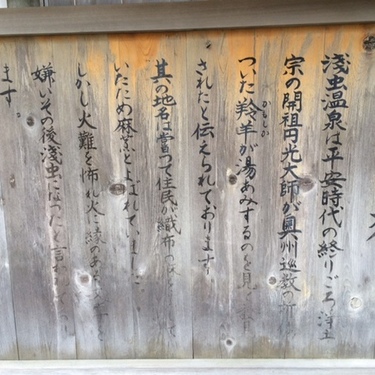 浅虫温泉は平安時代の終りごろ浄土
宗の開祖円光大師が奥州巡教の折
ついた羚羊が湯あみするのを見
かもしか
されたと伝えられております。
其の地名は嘗つて住民が織布の
いたため麻蒸とよばれていました
しかし火難を怖れ火に縁のある
嫌いその後浅虫になったと言われて
ます。